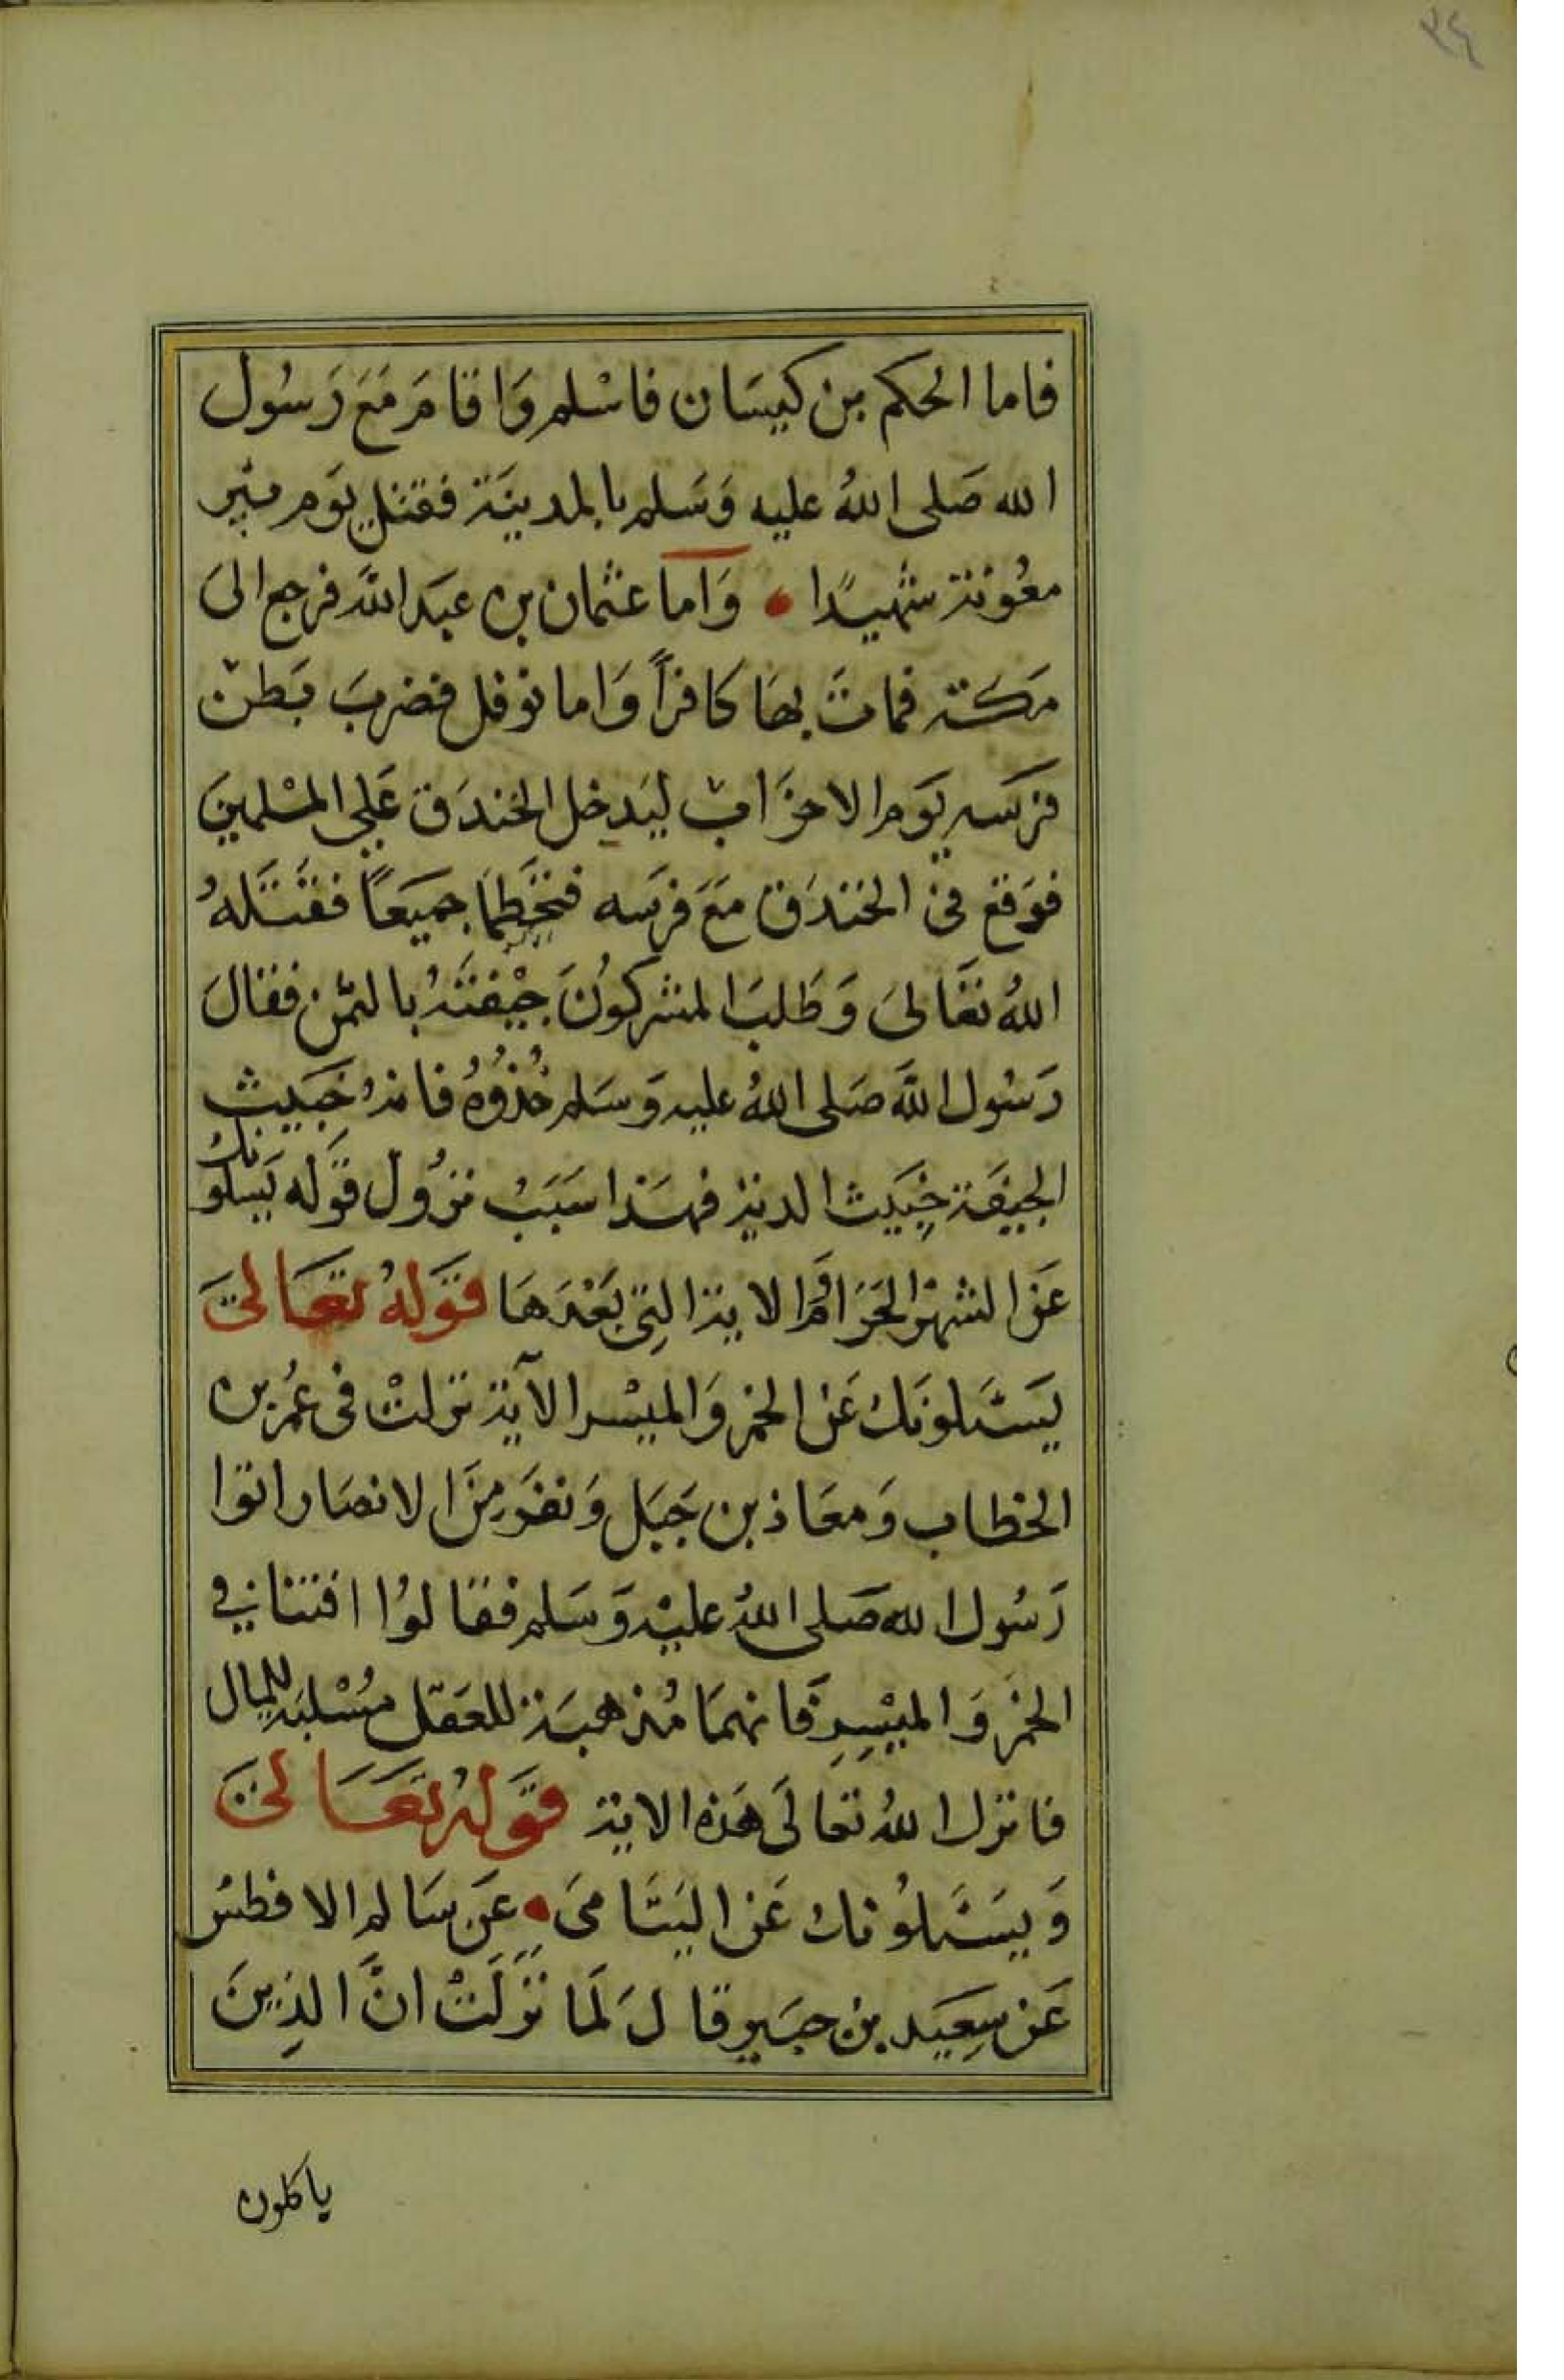 ٢٤
فاما الحكم بن كيسَان فاسْلم وَاقامَ مَعَ رَسُول
الله صَلى اللهُ عليه وَسَلم بالمدينَة فقتل يَوم بير
معُونة شهيدًا • وَاما عثمان بن عبَد اللهَ فرجع الىَ
مَكة فماتَ بهَا كافراً وَاما نوفل فضربَ بَطن
فرَسه يَوم الاحزَاب ليَدخل الخندَق عَلى المسْلمينَ
فوَقع في الخندَق مَعَ فرَسه فتحَطما جميَعًا فقتَلهُ
اللهُ تعَالىَ وَطَلبَ المشركوُنَ جيْفتَهُ بالثمن فقالَ
رَسُول اللهَ صَلى اللهُ عليه وَسَلم خُذوُهُ فانهُ خبَيث
الجيفَة خبَيث الدية فهَذا سَبَبُ نزُول قوَله يَسلونك
عَن الشهْر الحَرَام وَالاية التِى بَعْدَهَا قوَلهُ تعَالىَ
يَسَئلونَك عَن الخمر وَالميْسر الآية نزلتْ فى عُمر بن
الخطاب وَمعَاذ بن جَبَل وَنفَر مِنَ الانصَار اتوا
رَسُول الله صَلى اللهُ عليْه وَسَلم فقالوُا افتنا في
الخمَر وَالميْسِرِ فَانهمَا مُذهبَة للعَقل مُسْلبَة للمِال
فانزل اللهُ تعالَى هَذه الاية قوَلهُ تعَالىَ
وَيسَئلوُنك عَن اليَتَامىَ • عَن سَالم الافطسُ
عَن سِعيَد بن جبَير قالَ لَما نزَلَتْ انَّ الذِينَ
ياكلون